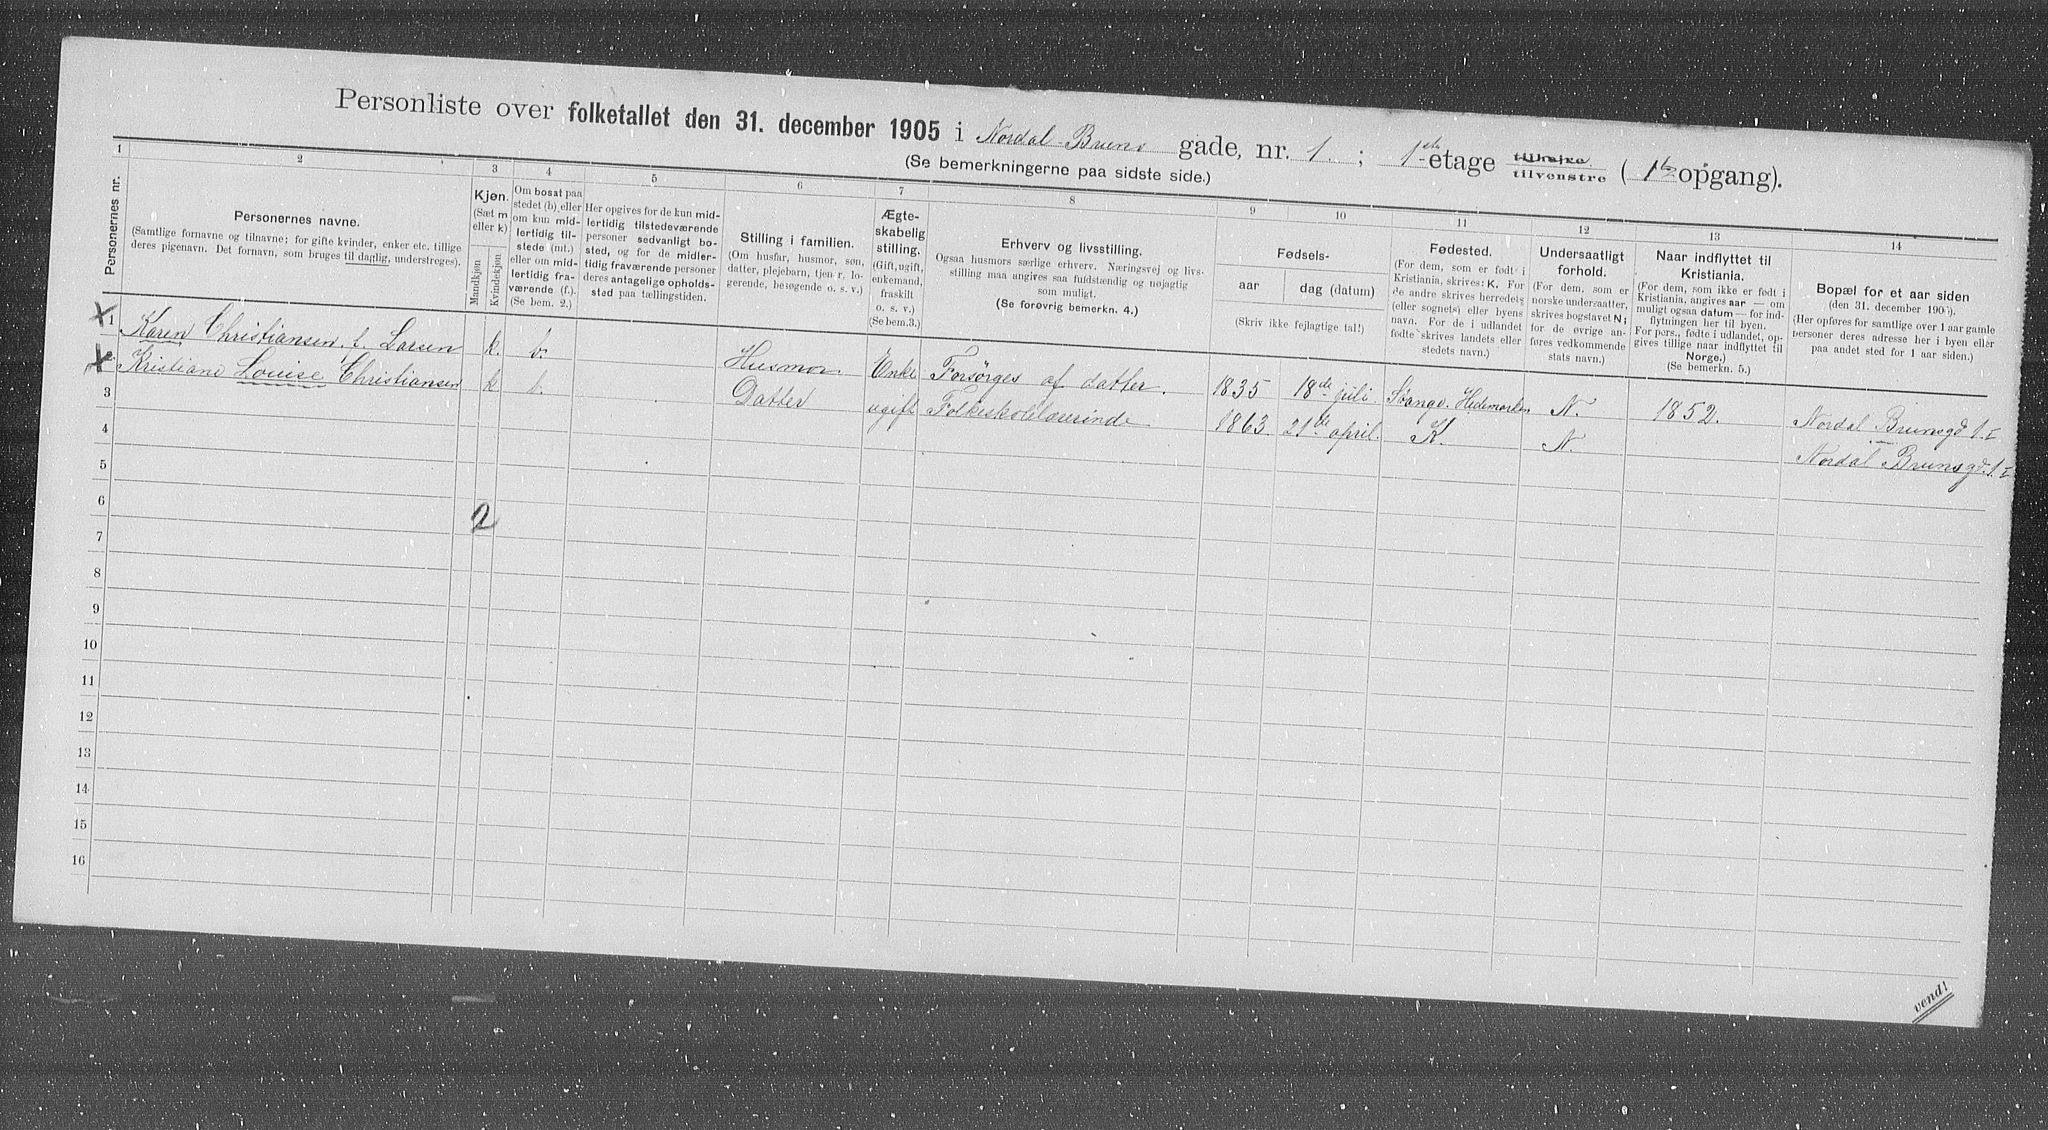 Personliste over folketallet den 31. december 1905 i Nordal-Bruns gade, nr. 1. ; 1ste etage tilhøire tilvenstre ( 1ste opgang).
(Se bemerkningerne paa sidste side.)
1 2 3 4 5 6 7 8 9 10 11 12 13 14
Personernes nr.
Personernes navne.
(Samtlige fornavne og tilnavne; for gifte kvinder, enker etc. tillige
deres pigenavn. Det fornavn, som bruges til daglig, understreges).
Kjøn.
(Sæt m
eller k)
Mandkjøn
Kvindekjøn
Om bosat paa
stedet (b) eller
om kun mid-
lertidig til-
stede (mt.)
eller om mid-
lertidig fra-
værende (f.).
(Se bem. 2.)
Her opgives for de kun mid-
lertidig tilstedeværende
personer sedvanligt bo-
sted, og for de midler-
tidig fraværende personer
deres antagelige opholds-
sted paa tællingstiden.
Stilling i familien.
(Om husfar, husmor, søn,
datter, plejebarn, tjener, lo-
gerende, besøgende o. s. v.)
Ægte-
skabelig
stilling.
(Gift, ugift,
enkemand,
fraskilt
o. s. v.)
(Se bem. 3.)
Erhverv og livsstilling.
Ogsaa husmors særlige erhverv. Næringsvej og livs-
stilling maa angives saa fuldstændig og nøjagtig
som muligt.
(Se forøvrig bemerkn. 4.)
Fødsels-
aar
dag (datum)
(Skriv ikke fejlagtige tal!)
Fødested.
(For dem, som er født i
Kristiania, skrives: K. For
de andre skrives herredets
(eller sognets) eller byens
navn. For de i udlandet
fødte skrives landets eller
stedets navn.)
Undersaatligt
forhold.
(For dem, som er
norske undersaatter,
skrives bogstavet N;
for de øvrige an-
føres vedkommende
stats navn.)
Naar indflyttet til
Kristiania.
(For dem, som ikke er født i
Kristiania, angives aar — om
muligt ogsaa datum — for ind-
flytningen her til byen.
For pers., fødte i udlandet, op-
gives tillige naar indflyttet til
Norge.)
(Se bemerkn. 5.)
Bopæl for et aar siden
(den 31. december 1904).
(Her opføres for samtlige over 1 aar gamle
personer deres adresse her i byen eller
paa andet sted for 1 aar siden.)
X 1 Karen Christiansen, f. Larsen k. b. Husmor Enke Forsørges af datter. 1835 18de juli. Stange. Hedemarken N. 1852. Nordal Brunsgd 1. I
X Kristiane Louise Christiansen k b. Datter ugift Folkeskolelærerinde 1863. 21de april. K. N. Nordal Brunsgd. 1. I
3
4
5
6
2
7
8
9
10
11
12
13
14
15
16
vend!